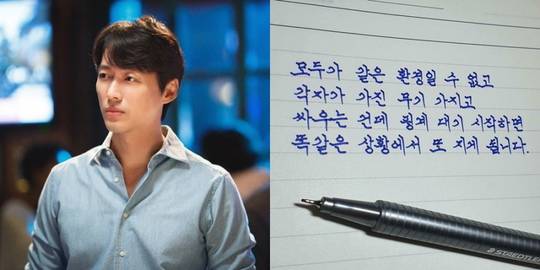 모두가 같은 환경일 수 없고
각자가 가진 무기 가지고
싸우는 건데 핑계 대기 시작하면
똑같은 상황에서 또 지게 됩니다.
STAEDTLER